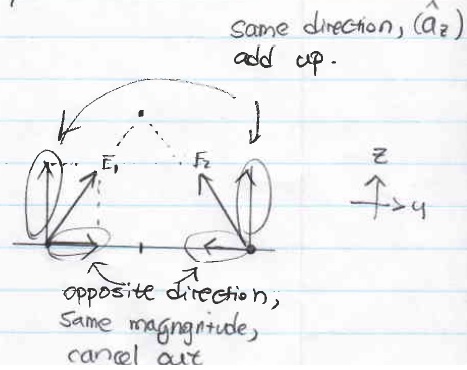 same direction, (âz)
add up.
E1
E2
z
y
opposite direction,
same magngnitude,
cancel out